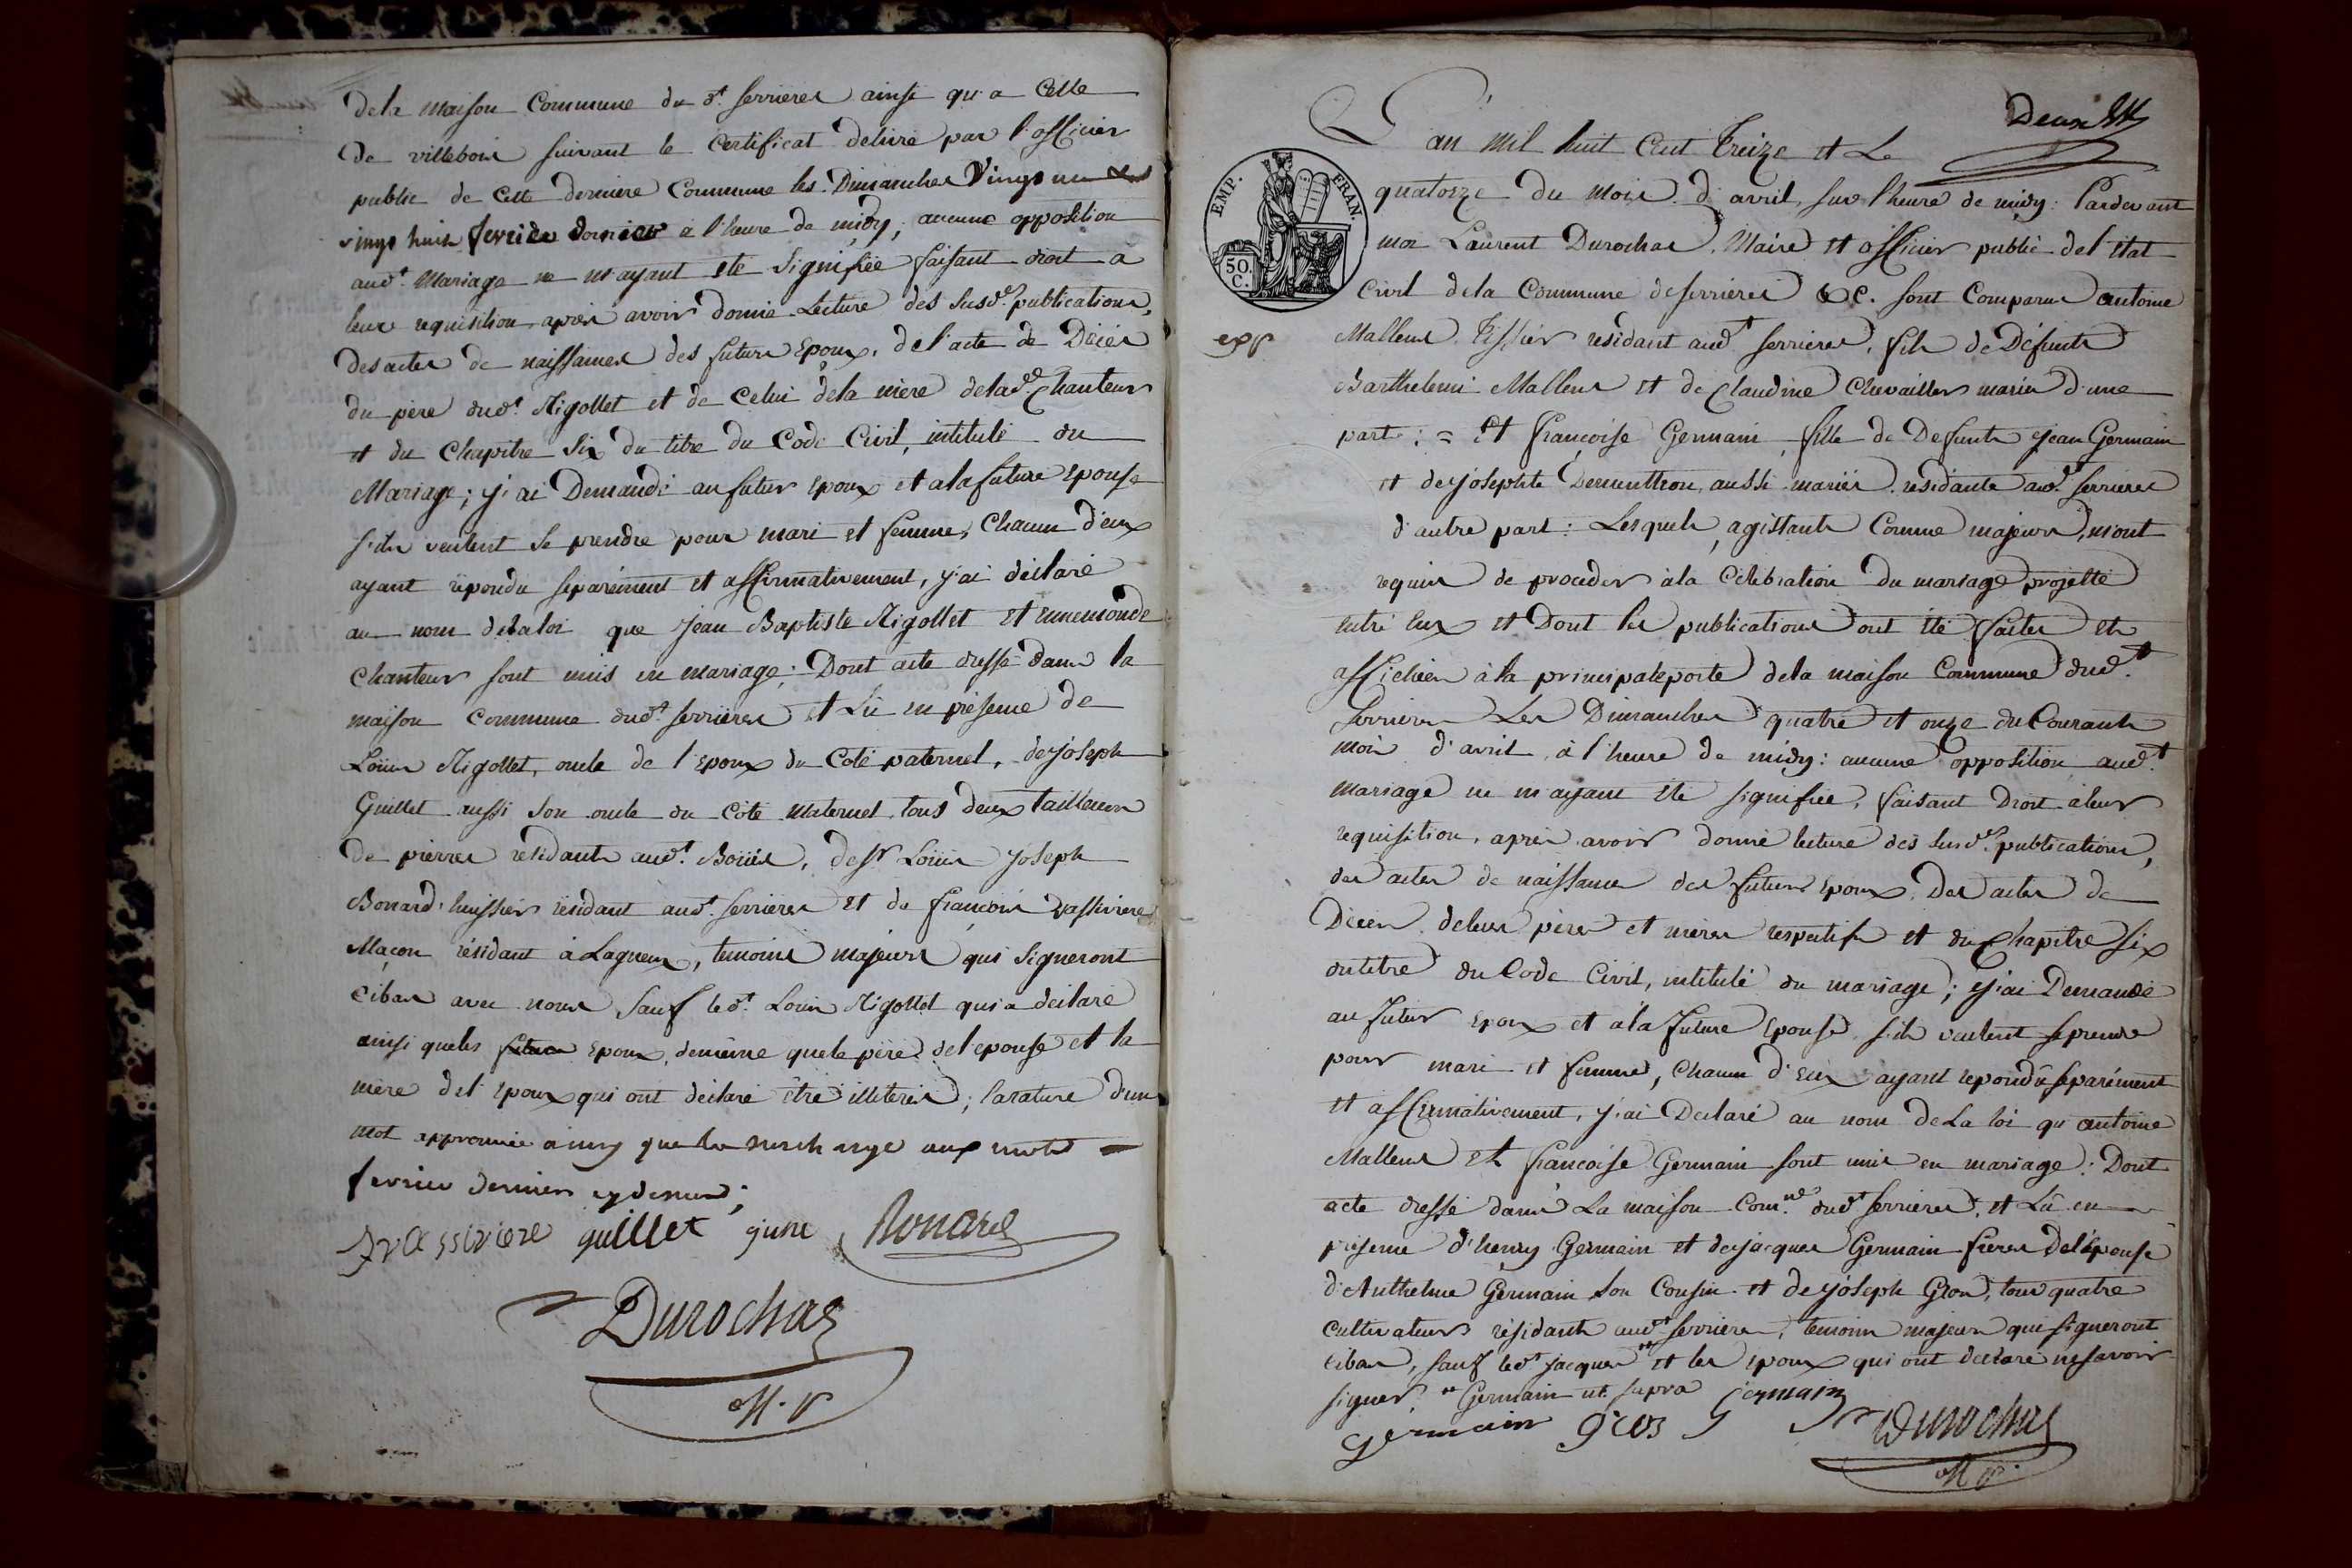 dela maison Commune du dt. serrieres ainsi qu'a Celle
De villebois suivant le Certificat delivré par l'officier
public de Cette derniere Commune les Dimanches Vingt un et
vingt huit fevrier dernier à l'heure de midy; aucune opposition
audt. Mariage ne m'ayant eté Signifiée faisant droit a
leur requisition après avoir donné Lecture des susd.es publications,
des actes de naissances des futurs Epoux, de l'acte de Décès
du père dudt. Rigollet et de Celui dela mère delade. Chanteur
et du Chapitre Six du titre du Code Civil, intitulé du
Mariage; j'ai Demandé au futur Epoux et a la future Epouse
s'ils veulent se prendre pour mari et femme, Chacun d'eux
ayant repondu separément et affirmativement, j'ai déclaré
au nom de la loi que Jean Baptiste Rigollet et Ennemonde
Chanteur sont unis en mariage; Dont acte dressé dans la
maison Commune dudt. serrieres et Lû en présence de
Louis Rigollet, oncle de l'Epoux du Coté paternel, de joseph
Guillet aussi son oncle du Coté Maternel, tous deux tailleurs
de pierres residants audt. Bouis, de sr Louis joseph
Bonard huissier résidant audt. serrieres et de françois Vassiviere
Maçon résidant à Lagneux, temoins majeurs qui Signeront
cibas avec nous sauf ledt. Louis Rigollet qui a déclaré
ainsi que les future Epoux, demême que le père del'epouse et la
mere del'Epoux qui ont déclaré être illiterés; la rature d'un
Mot approuvée ainsy que la surcharge aux mots
fevrier dernier cy dessus;
fvassiviere guillet jurre Bonard
Durochas
M. P
Deux
L'an Mil huit Cent Treize et Le
quatorze du Mois d'avril, sur l'heure de midy: Pardevant
moi Laurent Durochas, Maire et officier public de l'etat
Civil dela Commune de serrieres &c. sont Comparus antoine
Malleus Tissier résidant audt. serrieres, fils de Défunts
Barthelemi Malleus et de Claudine Chevailler mariés d'une
part: = Et françoise Germain, fille de Defunts jean Germain
et de josephte Dementhon, aussi mariés, residante audt. serrieres
d'autre part: Lesquels, agissants Comme majeurs, m'ont
requis de proceder àla Célébration du mariage projetté
entre eux et Dont les publications ont été faites et
affichées à la principale porte dela maison Commune dudt.
serrieres Les Dimanches quatre et onze du Courant
mois d'avril, à l'heure de midy: aucune opposition audt.
mariage ne m'ayant été signifiée, faisant Droit àleur
requisition, après avoir donné lecture des susd.es publications,
des actes de naissances des futurs Epoux, Des actes de
Décès deleurs pères et mères respectifs et du Chapitre six
du titre du Code Civil, intitulé du mariage; j'ai Demandé
au futur Epoux et a la future Epouse s'ils veulent se prendre
pour mari et femme, Chacun d'eux ayant repondu separément
et affirmativement, j'ai Déclaré au nom de La loi qu'antoine
Malleus et françoise Germain sont unis en mariage: Dont
acte dressé dans La maison Com.ne dudt serrieres, et Lû en
présence d'henry Germain et de jacques Germain freres De l'épouse
d'Anthelme Germain son Cousin et de joseph Gros, tous quatre
Cultivateurs résidants audt serrieres, temoins majeurs qui signeront
cibas, sauf ledt jacques et les epoux qui ont declaré ne savoir
signer. Germain ut supra Germain
Germain gros Durochas
M P.
EMP. FRAN.
50. C.
exp